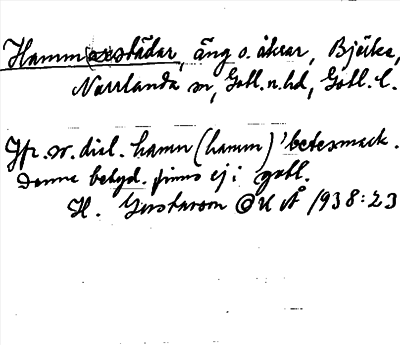 Hammarstädar, äng o. åkrar, Bjärka,
Norrlanda sn, Gotl. n. hd, Gotl. l.
Jfr. sv. dial. hamn (hamm) 'betesmark'.
Denna betyd. finns ej i gotl.
H. Gustavson OUÅ 1938:23